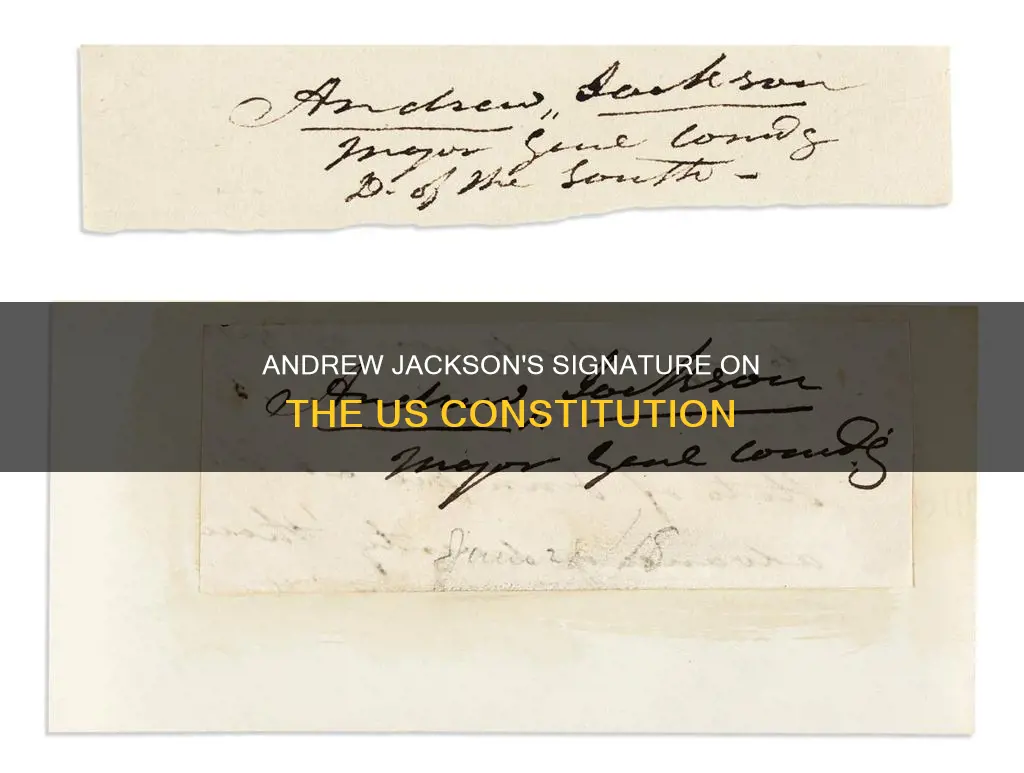 Andrew, Jackson
Major Genl Comdg
D. of the South -
ANDREW JACKSON'S SIGNATURE ON
THE US CONSTITUTION
Andrew, Jackson
Major Genl Comdg